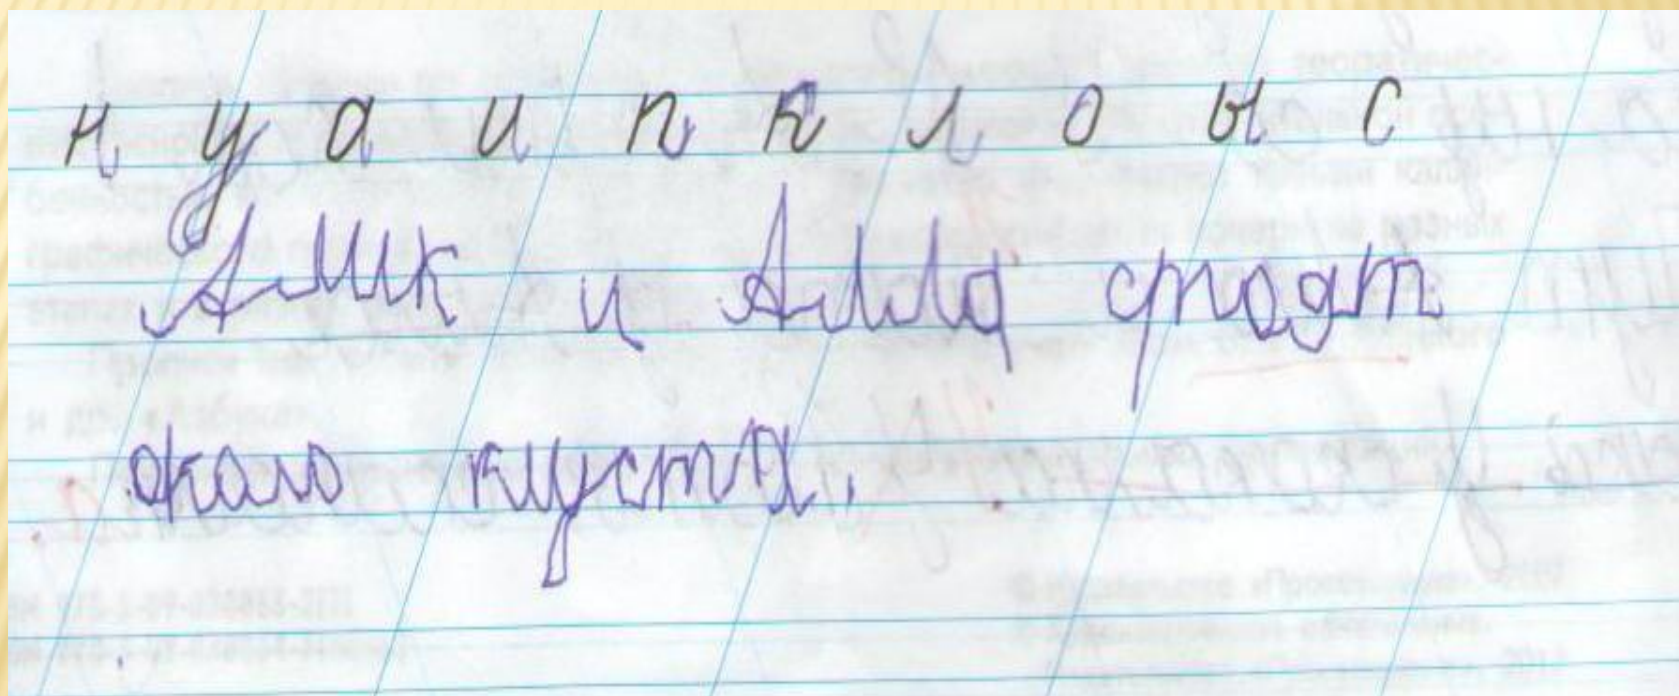 н у а и п к л о ы с
Алик и Алла стоят
около куста.